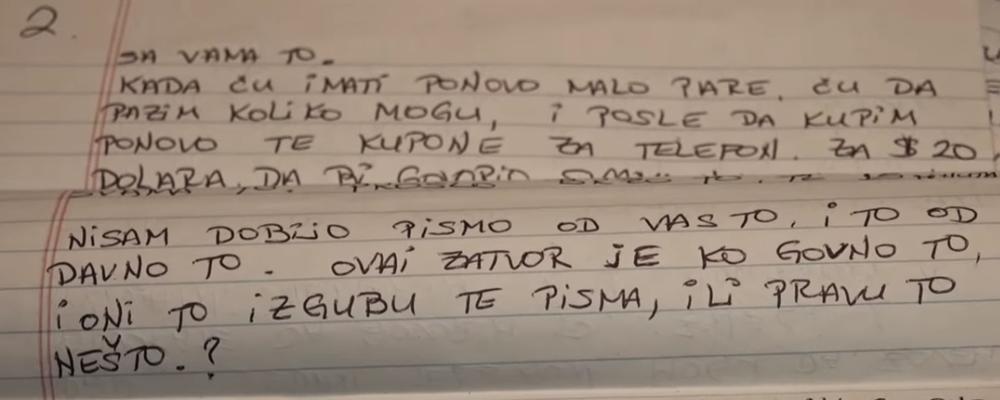 2.
SA VAMA TO.
KADA ĆU IMATI PONOVO MALO PARE. ĆU DA
PAZIM KOLIKO MOGU, I POSLE DA KUPIM
PONOVO TE KUPONE ZA TELEFON. ZA $20
DOLARA, DA BI GOVORIO
NISAM DOBIJO PISMO OD VAS TO, I TO OD
DAVNO TO. OVAI ZATVOR JE KO GOVNO TO,
I ONI TO IZGUBU TE PISMA, ILI PRAVU TO
NEŠTO.?